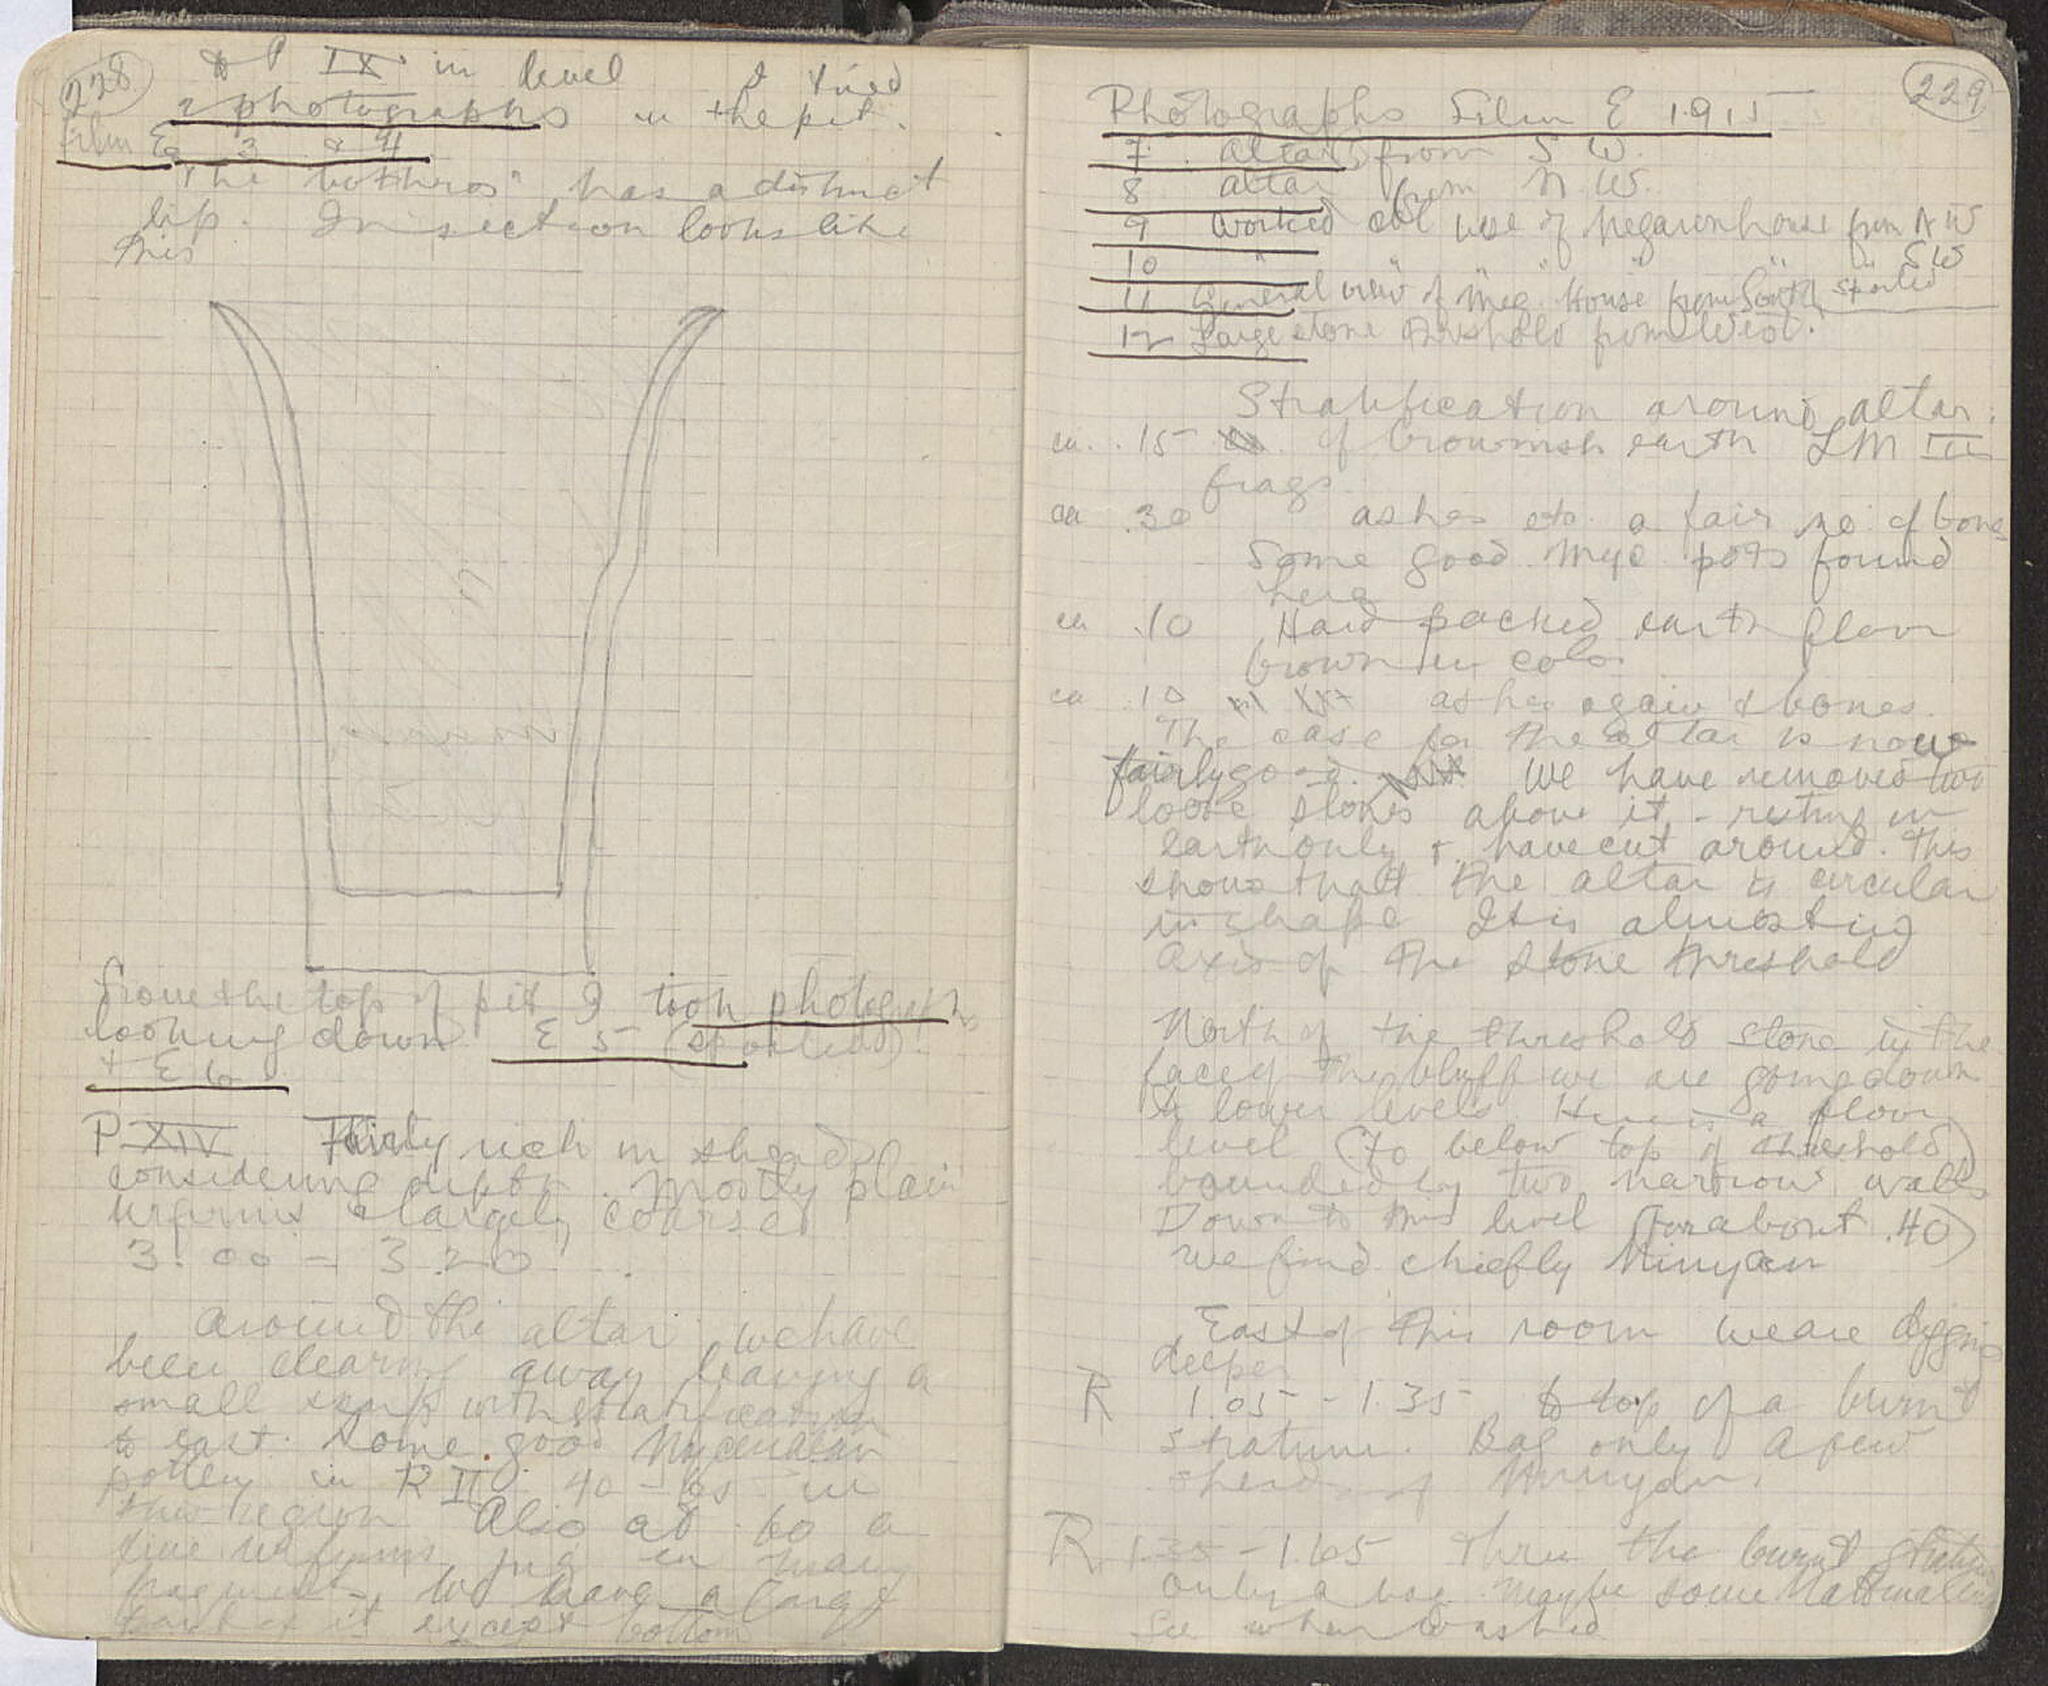 228
to P IX in level I tried
2 photographs in the pit.
Film E 3 & 4
The "bothros" has a distinct
lip. In section looks like
this
From the top of pit I took photographs
looking down E 5 (spoiled)
+ E 6
P XIV Fairly rich in sherds
considering depth. Mostly plain
urfirnis & largely coarse
3.00 - 3.20
Around the altar we have
been clearing away leaving a
small with stratification
to east. Some good Mycenaean
pottery in R II 40 - 65 in
this region Also at .60 a
fine urfirnis jug in many
fragments, we have a large
part of it except bottom
229
Photographs Film E 1915
7 altar from S W.
8 altar from N. W.
9 Worked base of Megaron house from N W
10 " " " " " S W
11 General view of Meg. House from South spoiled
12 Large stone threshold from West.
Stratification around altar.
ca. .15 of brownish earth LM III
frags
ca .30 ashes etc. a fair no. of bones
Some good Myc pots found
here
ca .10 Hard packed earth floor
brown in color
ca .10 ashes again & bones.
The case for the altar is now
fairly good. We have removed two
loose stones above it - resting in
earth only + have cut around. This
shows that the altar is circular
in shape It is almost in
axis of the stone threshold
North of the threshold stone in the
face of the bluff we are going down
to lower levels. Here is a floor
level (70 below top of threshold)
bounded by two narrow walls
Down to this level (for about .40)
we find chiefly Minyan
East of this room we are digging
deeper
R 1.05 - 1.35 to top of a burnt
stratum. Bag only a few
sherds of Minyan.
R 1.35 - 1.65 thru the burnt stratum
only a bag. Maybe some Mattmalerei
See when washed